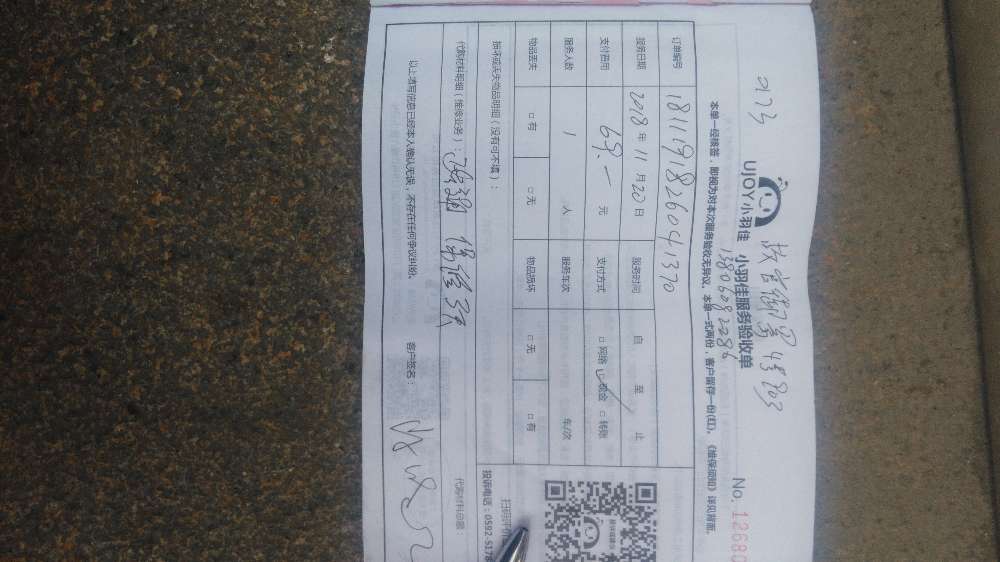 UJOY小羽佳 小羽佳服务验收单
No. 12680
13806082286
本单一经核签,即视为对本次服务验收无异议。本单一式两份,客户留存一份(红)。《维保须知》详见背面。
订单编号 1811191826041370
服务日期 2018年11月20日 服务时间 自 至 止
支付费用 69.一 元 支付方式 □网络 □现金 □转账
服务人数 1 人 服务车次 车/次
物品丢失 □有 □无 物品损坏 □无 □有
损坏或丢失物品明细(没有可不填):
扫码评价
投诉电话:0592-5178
代购材料明细(维修业务): 代购材料总额:
以上填写信息已经本人确认无误,不存在任何争议纠纷。 客户签名: